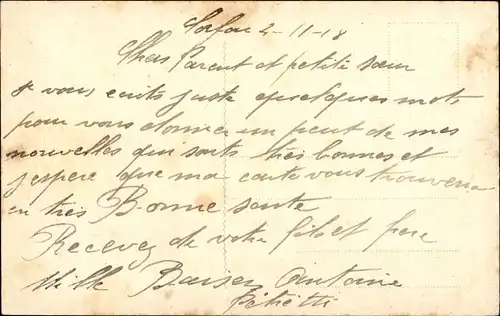 Corfou 2-11-18
Chers Parent et petite sœur
je vous, ecrits juste quelques mots
pour vous donner un peut de mes
nouvelles qui sonts très bonnes et
j'espere que ma carte vous trouverra
en très Bonne sante
Recevez de votre fils et frere
Mille Baisers Antoine